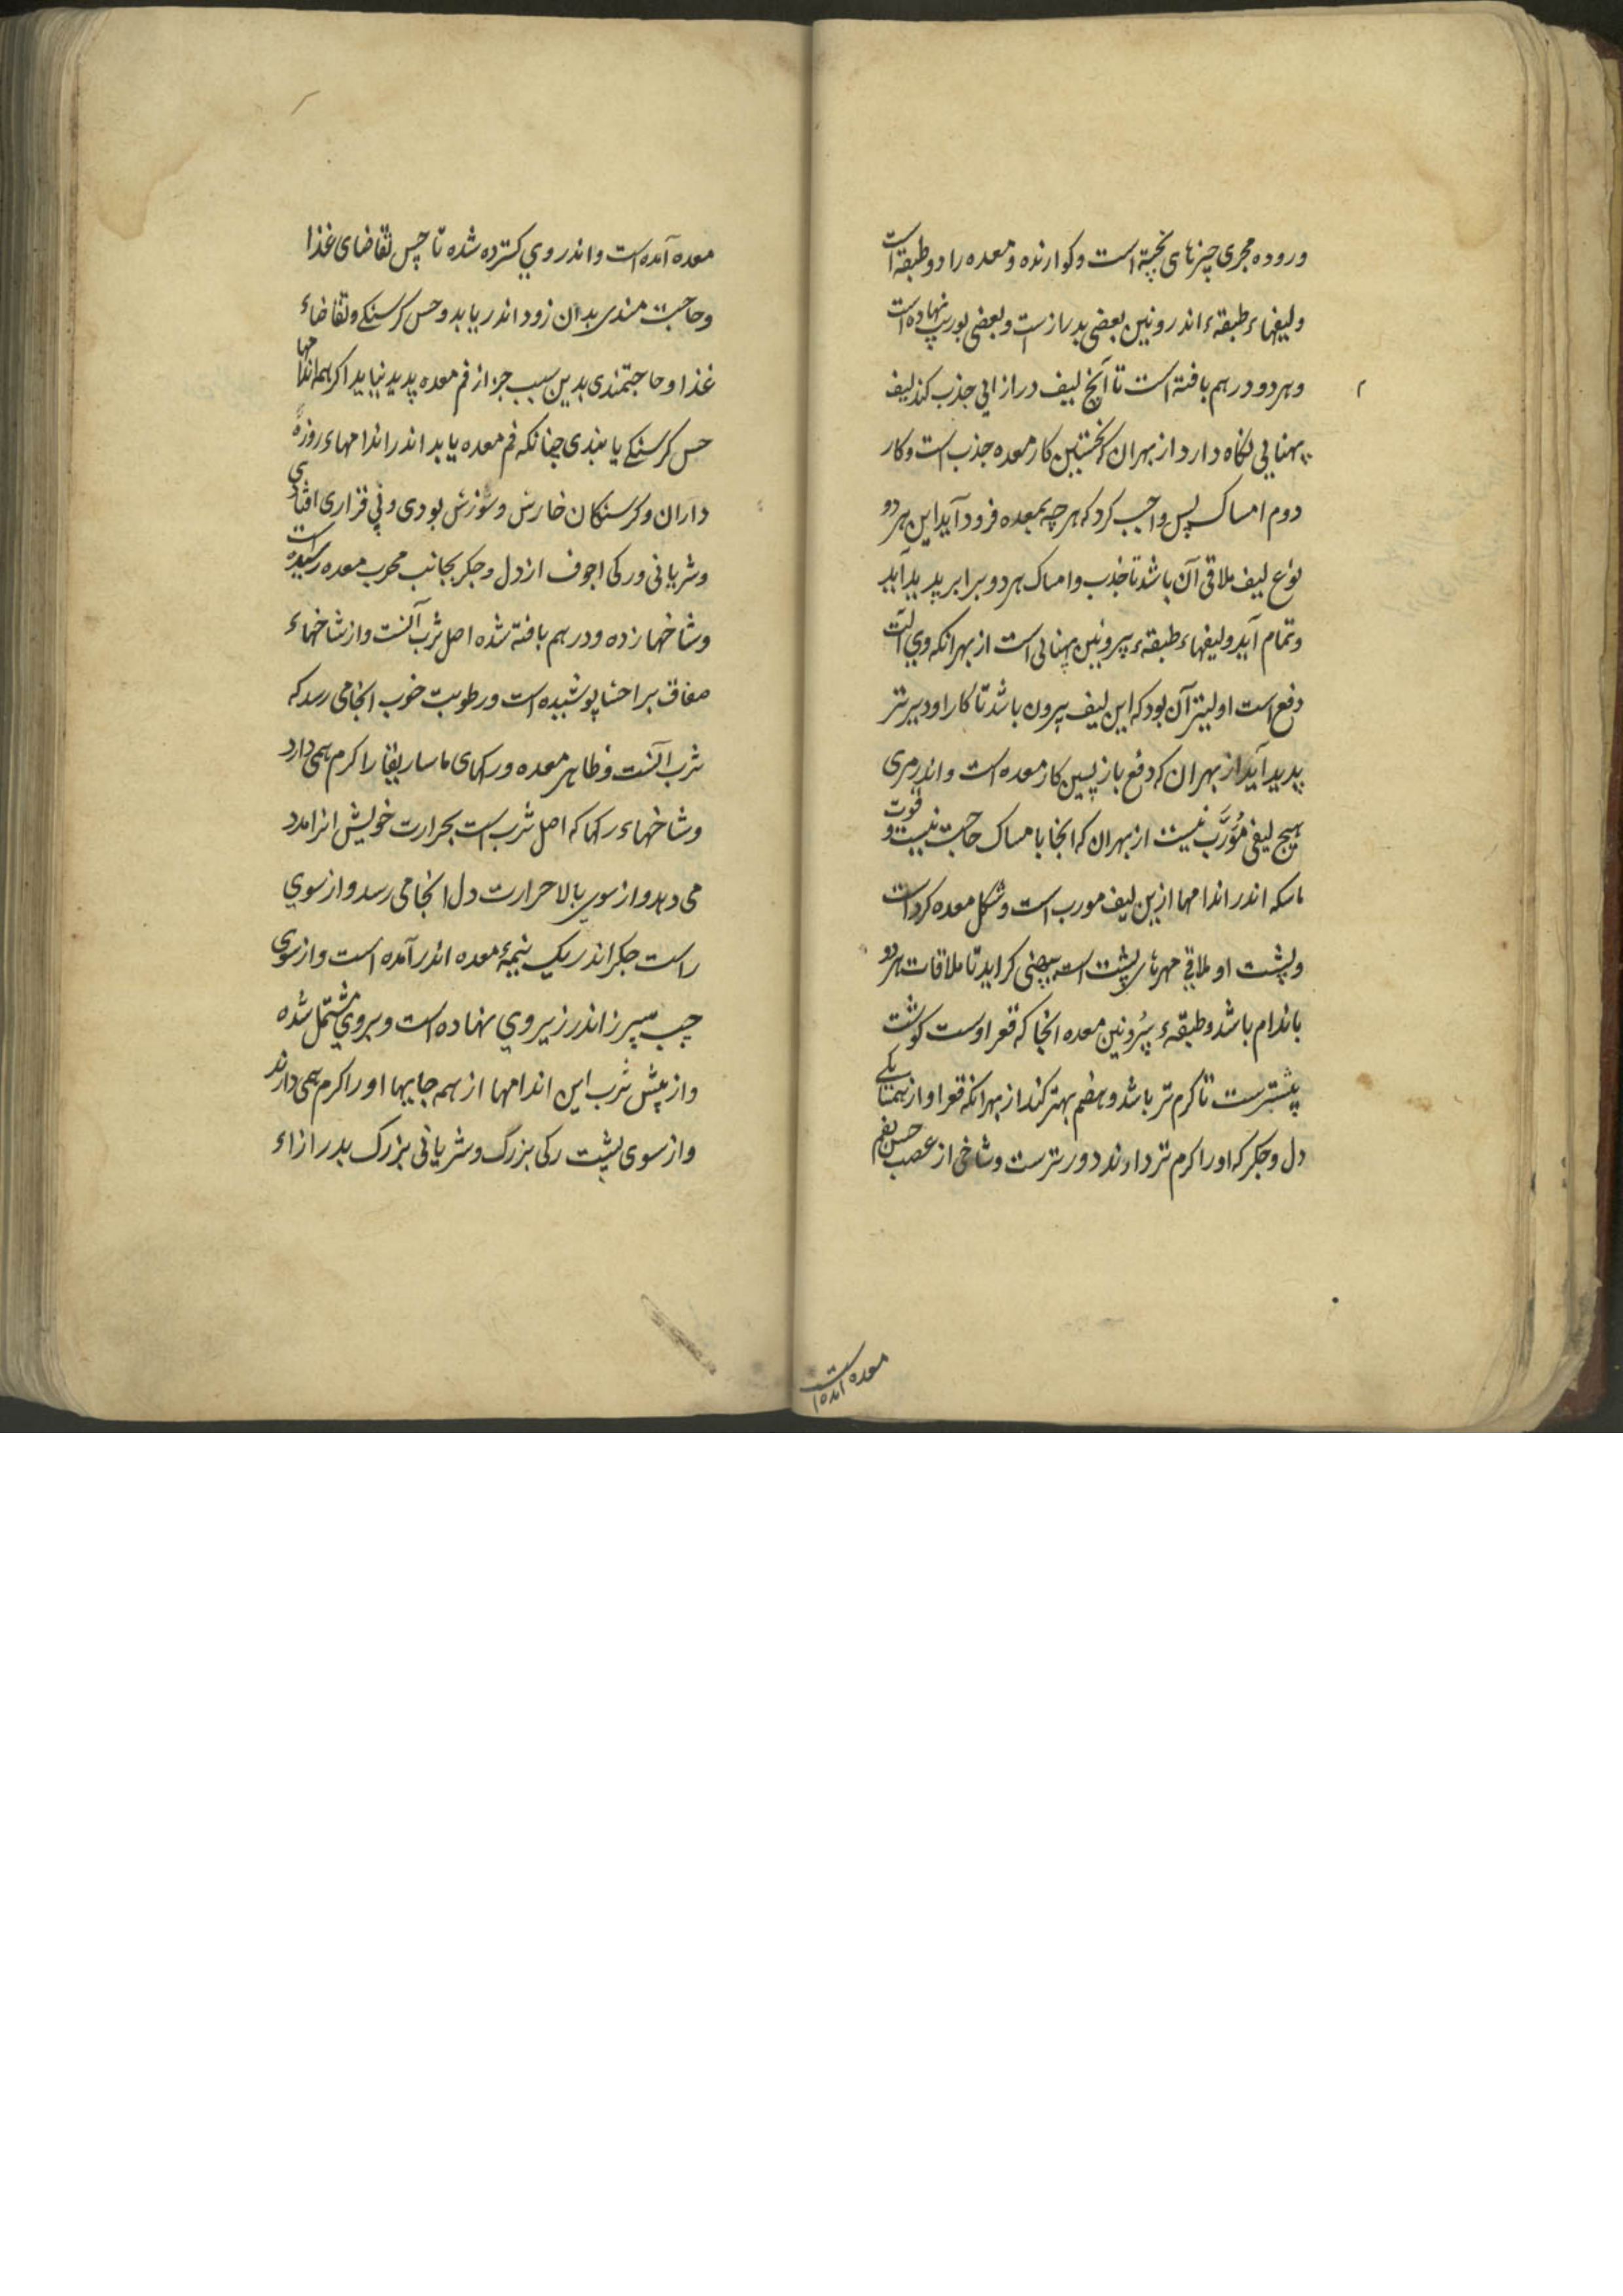 وروده مجری چیزهای پخته است و کوارنده و معده را دو طبقه است
ولیفهاء طبقهء اندرونین بعضی بدرازست و بعضی بوریب نهاده است
وهر دو درهم بافته است تا آنچ لیف درازایی جذب کند لیف
پهنایی نکاه دارد از بهران که نخستین کار معده جذب است و کار
دوم امساک پس واجب کرد که هر چه بمعده فرود آید این هر دو
نوع لیف ملاقی آن باشد تا جذب و امساک هر دو برابر پدید آید
وتمام آید ولیفهاء طبقهء بیرونین پهنایی است از بهرانکه وی آلت
دفع است اولیتر آن بود که این لیف بیرون باشد تا کار او دیرتر
پدید آید از بهران که دفع باز پسین کار معده است و اندر مری
هیچ لیفی مُوَرَّب نیست از بهران که انجا بامساک حاجت نیست و قوت
ماسکه اندر اندامها ازین لیف مورب است و شکل معده کرد است
وپشت او ملاقی مهرهای پشت است بپهنی کراید تا ملاقات هر دو
باندام باشد و طبقهء بیرونین معده انجا که قعر اوست کوشت
بیشترست تا کرم تر باشد و هضم بهتر کند از بهرانکه قعر او از همسایکی
دل و جکر که او را کرم تر دارند دورترست و شاخی از عصب حس بفم
معده آمده است
معده آمده است و اندر وی کسترده شده تا حس تقاضای غذا
وحاجت مندی بدان زود اندر یابد و حس کرسنکی و تقاضاء
غذا و حاجتمندی بدین سبب جز از فم معده پدید نیاید اکر همه اندامها
حس کرسنکی یابندی چنانکه فم معده یابد اندر اندامهاء روزه
داران و کرسنکان خارش و سوزش بودی و بی قراری افتادی
وشریانی ورکی اجوف از دل و جکر بجانب محرب معده رسیده است
وشاخها زده و درهم بافته شده اصل ثرب آنست و از شاخهاء
صفاق بر احشا پوشیده است و رطوبت خوب انجا می رسد که
ثرب آنست و ظاهر معده و رکهای ماساریقا را کرم همی دارد
وشاخهاء رکها که اصل ثرب است بحرارت خویش انرا مدد
می دهد و از سوی بالا حرارت دل انجا می رسد و از سوی
راست جکر اندر یک نیمهٔ معده اندر آمده است و از سوی
چپ سپرز اندر زیر وی نهاده است و بر وی مشتمل شده
واز پیش ثرب این اندامها از همه جایها او را کرم همی دارند
واز سوی پشت رکی بزرگ و شریانی بزرک بدرازاء